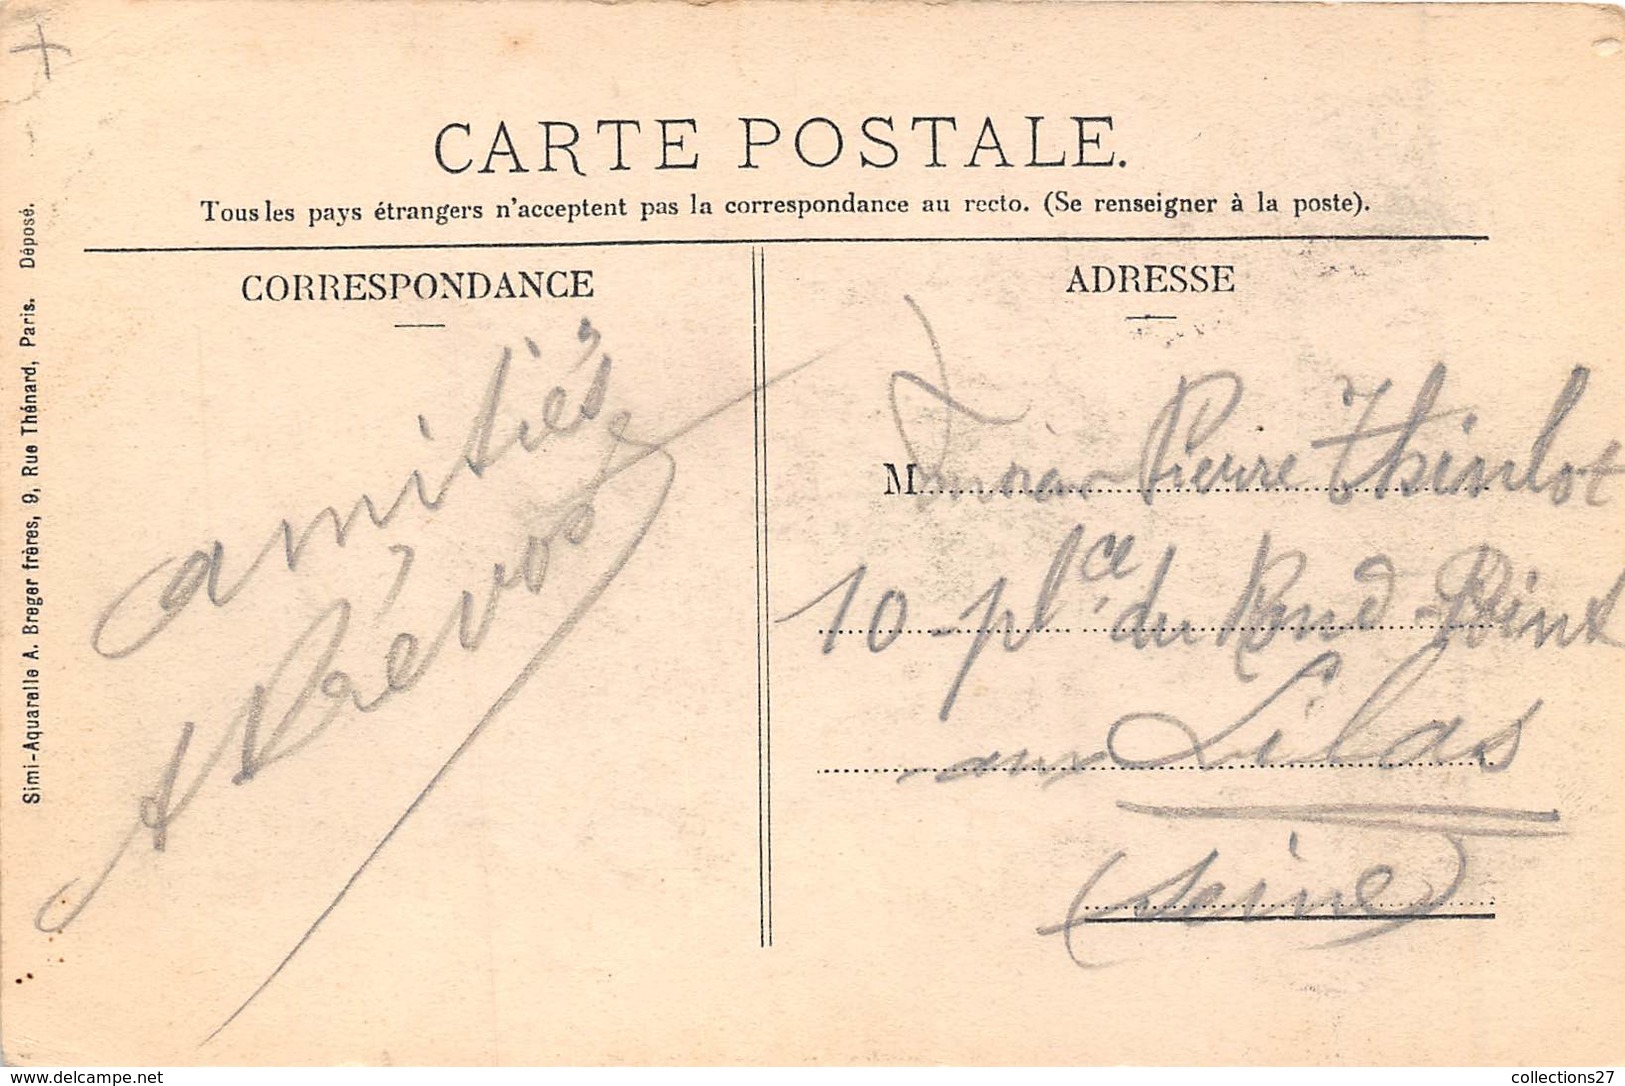 CARTE POSTALE.
Tous les pays étrangers n'acceptent pas la correspondance au recto. (Se renseigner à la poste).
Simi-Aquarelle A. Breger frères, 9, Rue Thénard, Paris. Déposé.
CORRESPONDANCE
amitiés
A Prévost
ADRESSE
M Pierre
10 - plce du Rond-Point
aux Lilas
(Seine)
www.delcampe.net
collections27